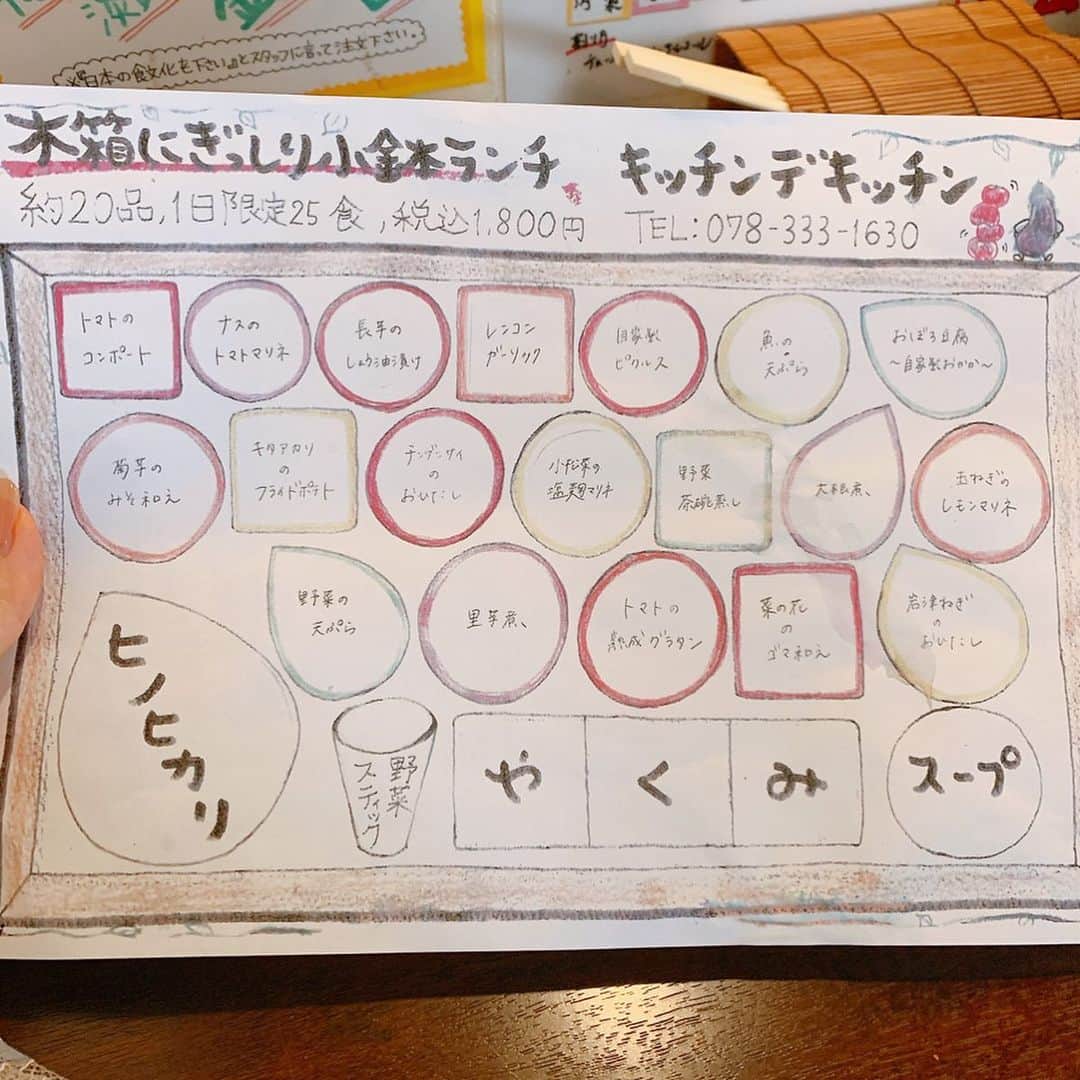 ※『日本の食文化を下さい。』とスタッフに言って注文下さい。
木箱にぎっしり小鉢ランチ キッチンデキッチン
約20品,1日限定25食,税込1,800円 TEL:078-333-1630
トマトの
コンポート
ナスの
トマトマリネ
長芋の
しょう油漬け
レンコン
ガーリック
自家製
ピクルス
魚の
天ぷら
おぼろ豆腐
～自家製おかか～
菊芋の
みそ和え
キタアカリ
の
フライドポテト
テンテンサイ
の
おひたし
小松菜の
塩麹マリネ
野菜
茶碗蒸し
大根煮
玉ねぎの
レモンマリネ
野菜の
天ぷら
里芋煮
トマトの
熟成グラタン
菜の花
の
ゴマ和え
岩津ねぎ
の
おひたし
ヒノヒカリ
野菜
スティック
やくみ
スープ